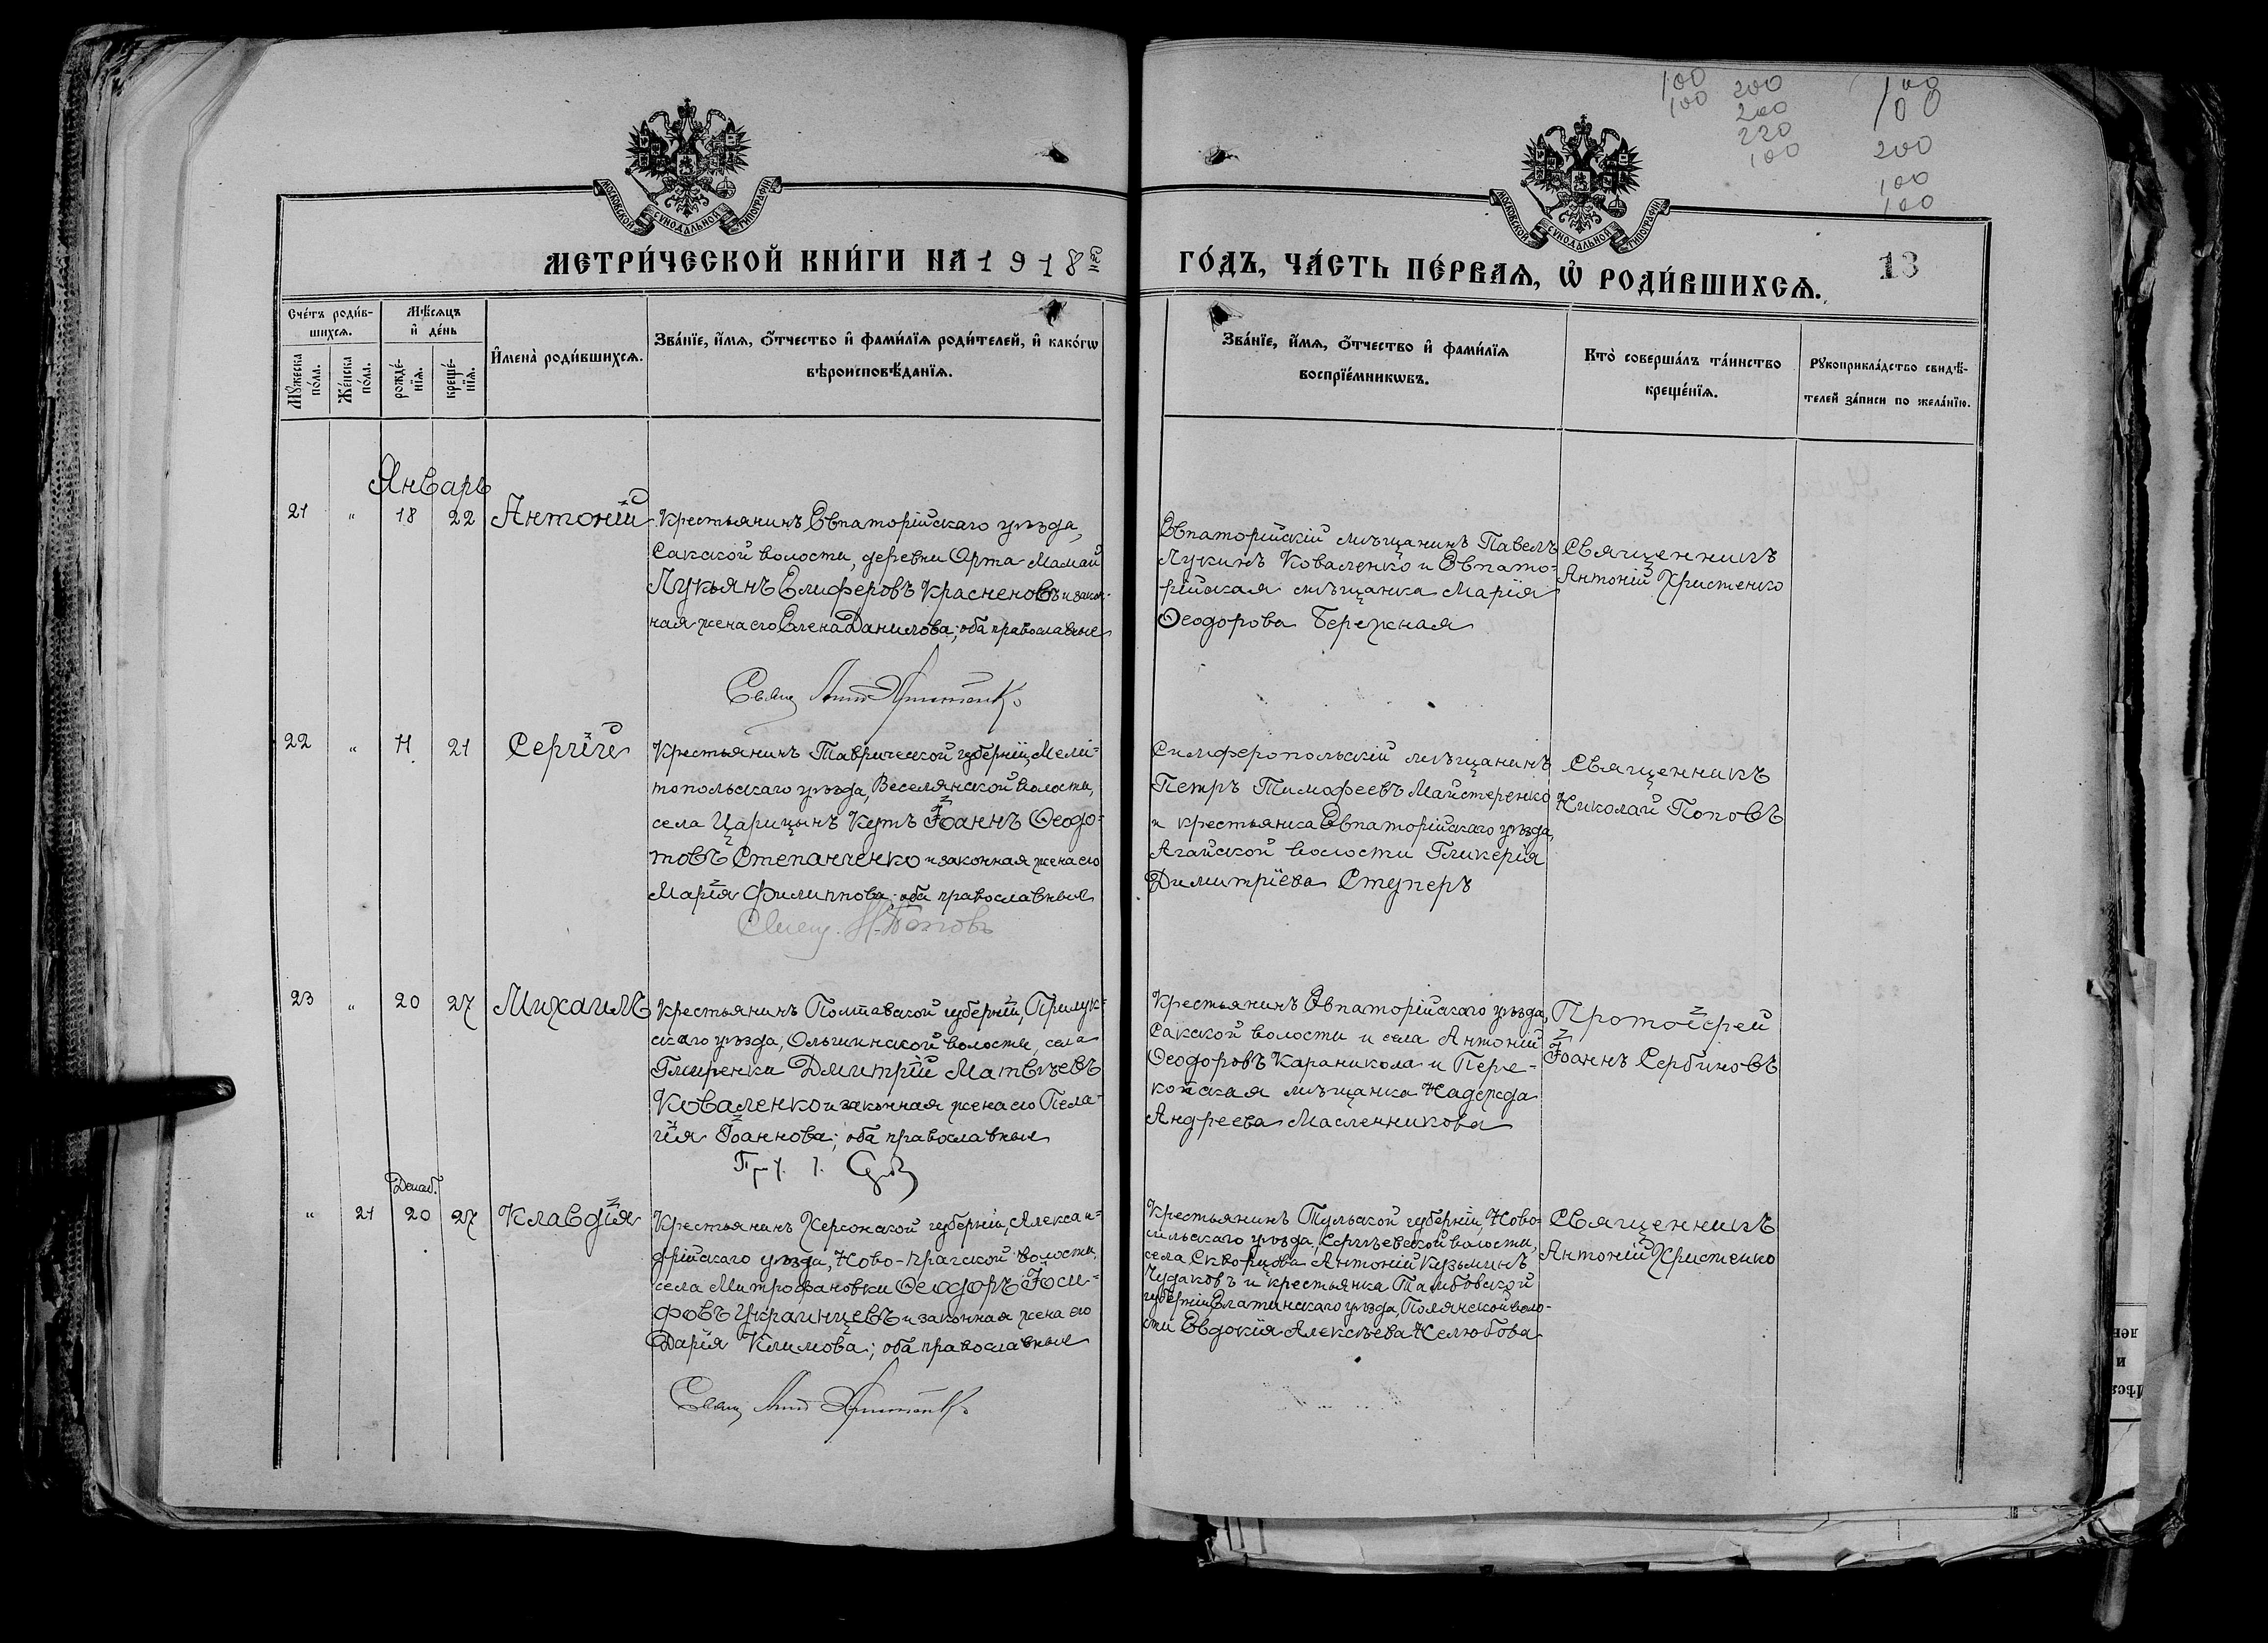 100 200 100
100 200 100
220 200
100 100
100
МОСКОВСКОЙ СѴНОДАЛЬНОЙ ТИПОГРАФІИ
МОСКОВСКОЙ СѴНОДАЛЬНОЙ ТИПОГРАФІИ
МЕТРИ́ЧЕСКОЙ КНИ́ГИ НА 1918й
ГО́ДЪ, ЧА́СТЬ ПЕ́РВАЯ, Ѡ҆ РОДИ́ВШИХСЯ.
13
Сче́тъ роди́в-
шихся.
Мꙋ́жеска
по́ла.
Же́нска
по́ла.
Мѣ́сяцъ
и҆ де́нь
рожде́-
нїя.
креще́-
нїя.
И҆мена̀ роди́вшихся.
Зва́нїе, и҆́мя, ѻ҆́тчество и҆ фами́лїя роди́телей, и҆ како́гѡ
вѣроисповѣ́данїя.
Зва́нїе, и҆́мя, ѻ҆́тчество и҆ фами́лїя
воспрїе́мникѡвъ.
Кто̀ соверша́лъ та́инство
креще́нїя.
Рꙋкоприкла́дство свидѣ́-
телей за́писи по жела́нїю.
Январь
21 " 18 22 Антоній
Крестьянинъ Евпаторійскаго уѣзда,
Сакской волости, деревни Орта-Мамай
Лукьянъ Елиферовъ Красненовъ и закон-
ная жена его Елена Данилова; оба православные
Свящ Антон Христенко
Евпаторійскій мѣщанинъ Павелъ
Лукинъ Коваленко и Евпато-
рійская мѣщанка Марія
Ѳеодорова Бережная
Священникъ
Антоній Христенко
22 " 11 21 Сергій
Крестьянинъ Таврической губерніи, Мели-
топольскаго уѣзда, Веселянской волости,
села Царицынъ Кутъ Іоаннъ Ѳеодо-
товъ Степанченко и законная жена его
Марія Филиппова; оба православные
Свящ. Н. Поповъ
Симферопольскій мѣщанинъ
Петръ Тимофеевъ Майстеренко
и крестьянка Евпаторійскаго уѣзда,
Агайской волости Гликерія
Димитріева Ступеръ
Священникъ
Николай Поповъ
23 " 20 27 Михаилъ
Крестьянинъ Полтавской губерніи, Прилук-
скаго уѣзда, Ольшинской волости, села
Гмиренки Дмитрій Матвѣевъ
Коваленко и законная жена его Пела-
гія Іоаннова; оба православные
Крестьянинъ Евпаторійскаго уѣзда,
Сакской волости и села Антоній
Ѳеодоровъ Караникола и Пере-
копская мѣщанка Надежда
Андреева Масленникова
Протоіерей
Іоаннъ Сербиновъ
Декаб.
" 21 20 27 Клавдія
Крестьянинъ Херсонской губерніи, Алексан-
дрійскаго уѣзда, Ново-Прагской волости,
села Митрофановки Ѳеодоръ Іоси-
фовъ Украинцевъ и законная жена его
Дарія Климова; оба православные
Свящ Антон Христенко
Крестьянинъ Тульской губерніи, Ново-
сильскаго уѣзда, Сергѣевской волости,
села Скворцова Антоній Кузьминъ
Чудаковъ и крестьянка Тамбовской
губерніи Елатинскаго уѣзда, Полянской воло-
сти Евдокія Алексѣева Нелюбова
Священникъ
Антоній Христенко